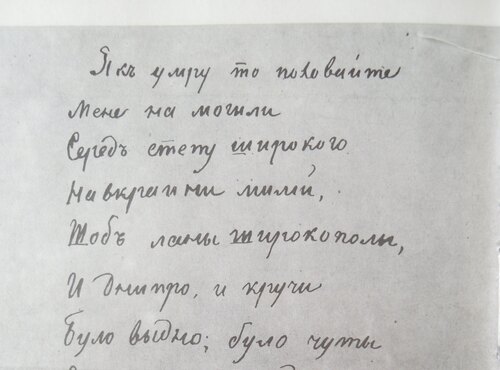 Якъ умру то поховайте
Мене на могили
Середъ степу широкого
На вкраини милій,
Щобъ ланы широкополы,
И Днипро, и кручи
Було выдно; було чуты